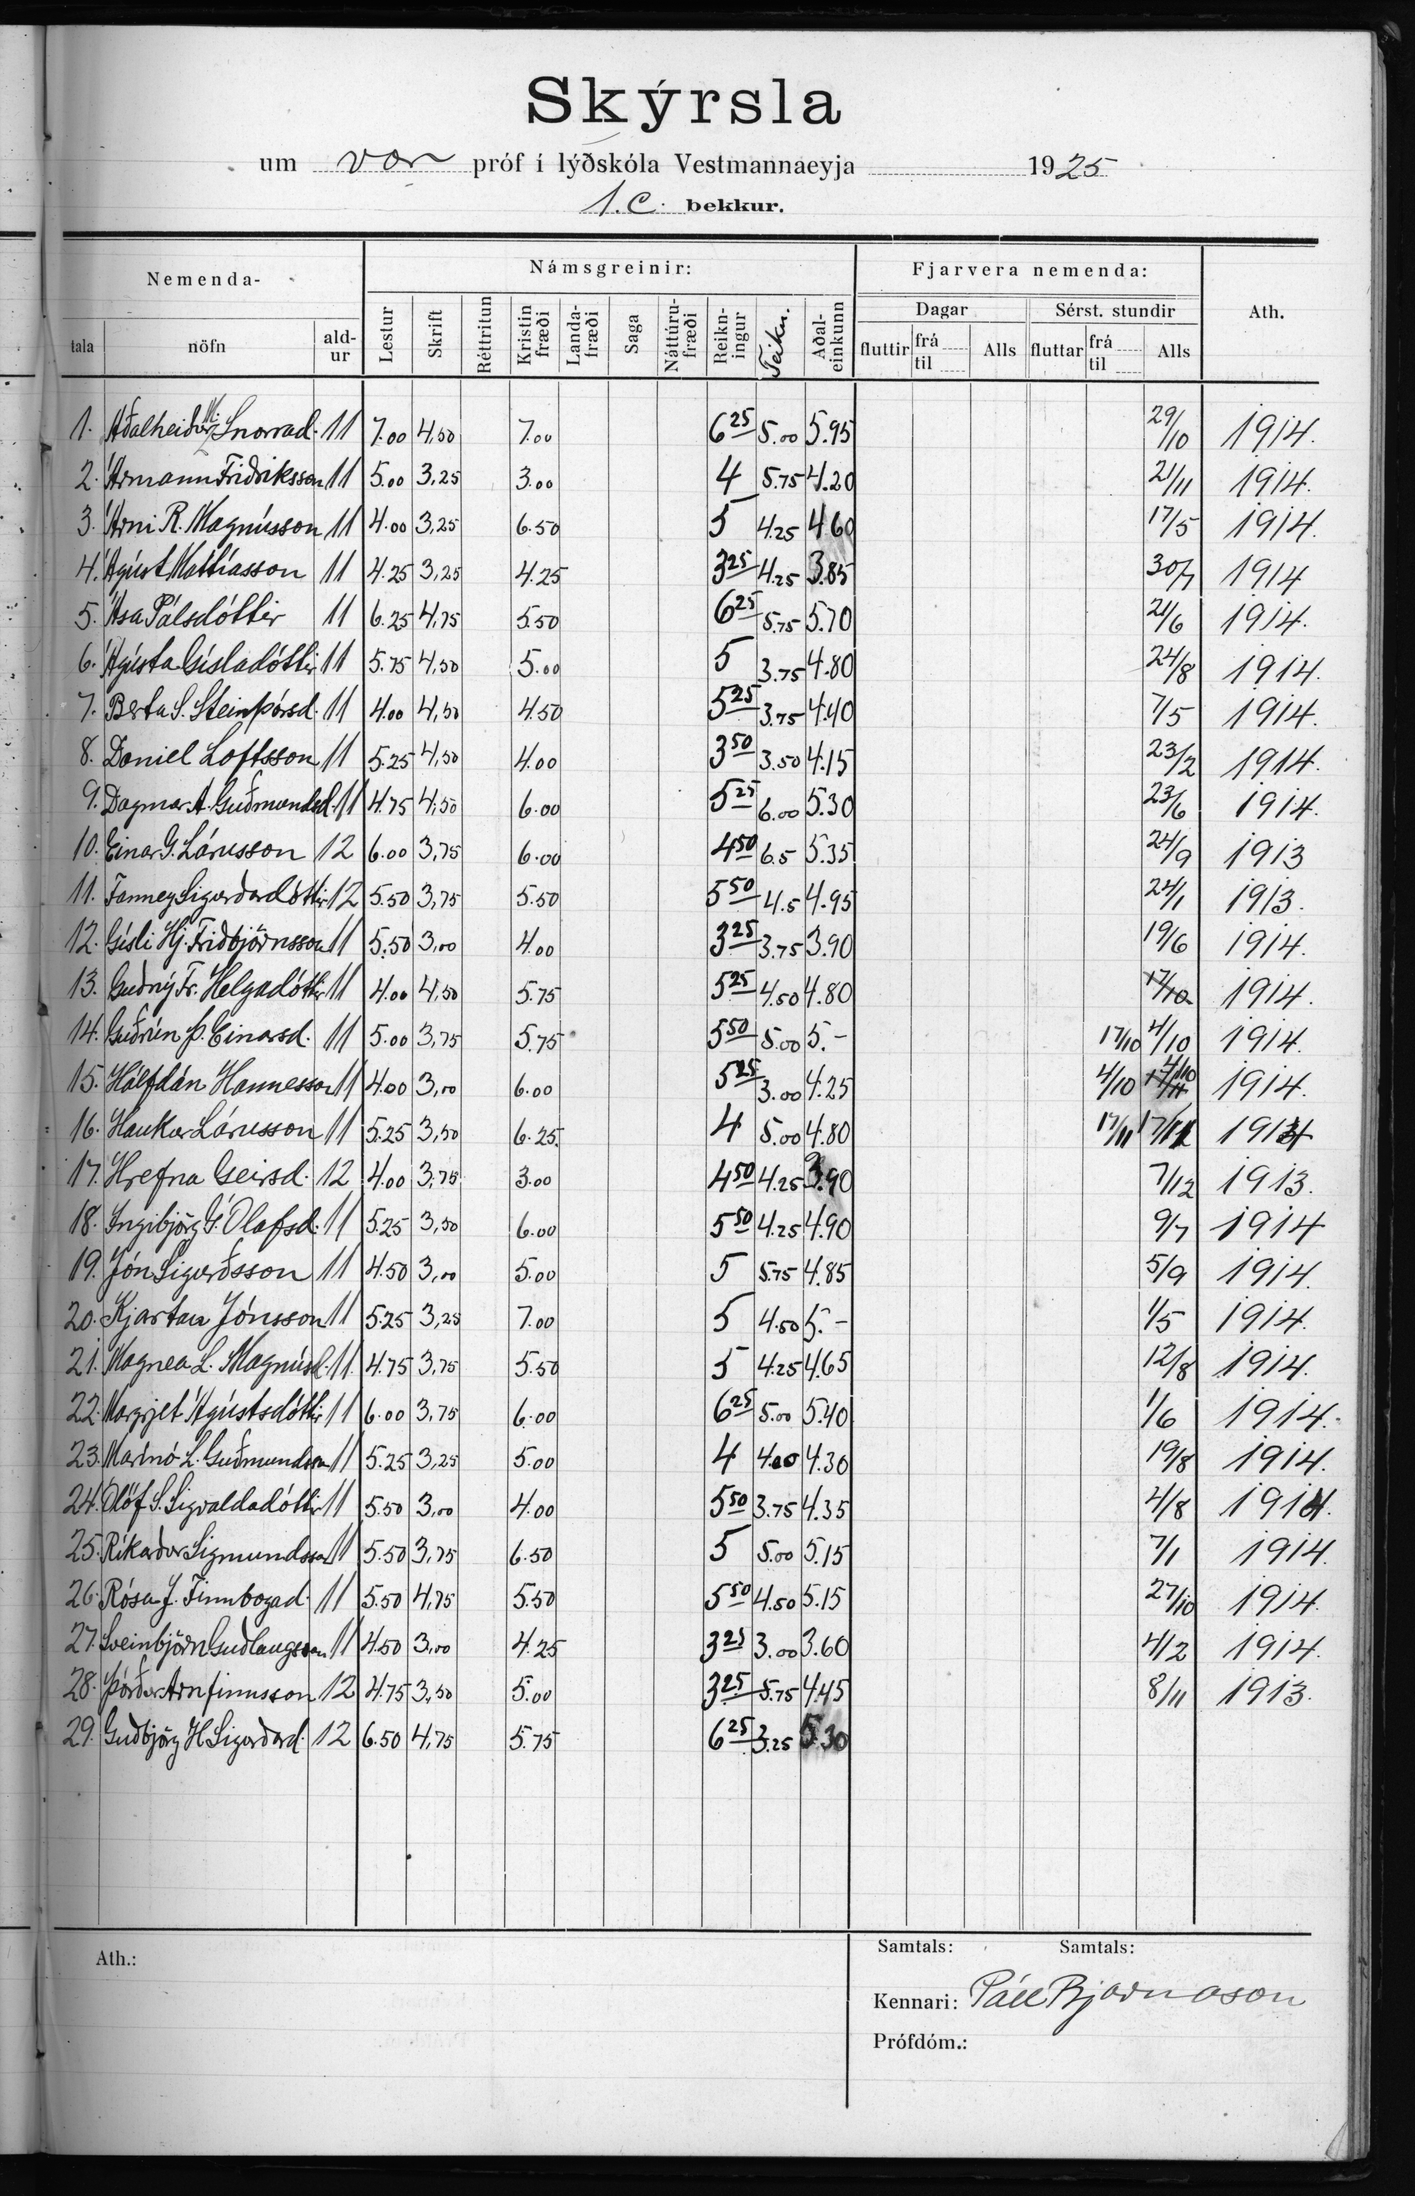 Skýrsla
um vor próf í lýðskóla Vestmannaeyja 1925
1.C. bekkur.
Nemenda- Námsgreinir: Fjarvera nemenda: Ath.
Dagar Sérst. stundir
tala nöfn ald-ur Lestur Skrift Réttritun Kristinfræði Landa-fræði Saga Náttúru-fræði Reikn-ingur Teikn. Aðal-einkunn fluttir frá til Alls fluttar frá til Alls
1. Aðalheiður M. Snorrad. 11 7.00 4,50 7.00 6 25 5.00 5.95 29/10 1914.
2. Ármann Friðriksson 11 5.00 3,25 3.00 4 5.75 4.20 21/11 1914.
3. Árni R. Magnússon 11 4.00 3,25 6.50 5 4.25 4.60 17/5 1914.
4. Ágúst Mattíasson 11 4.25 3,25 4.25 3 25 4.25 3.85 30/7 1914
5. Ása Pálsdóttir 11 6.25 4,75 5.50 6 25 5.75 5.70 21/6 1914.
6. Ágústa Gísladóttir 11 5.75 4,50 5.00 5 3.75 4.80 24/8 1914.
7. Berta S. Steinþórsd. 11 4.00 4,50 4.50 5 25 3.75 4.40 7/5 1914.
8. Daniel Loftsson 11 5.25 4,50 4.00 3 50 3.50 4.15 23/2 1914.
9. Dagmar A. Guðmundsd. 11 4.75 4,50 6.00 5 25 6.00 5.30 23/6 1914.
10. Einar G. Lárusson 12 6.00 3,75 6.00 4 50 6.5 5.35 24/9 1913
11. Fanney Sigurðardóttir 12 5.50 3,75 5.50 5 50 4.5 4.95 24/1 1913.
12. Gísli Hj. Friðbjörnsson 11 5.50 3,00 4.00 3 25 3.75 3.90 19/6 1914.
13. Guðný Fr. Helgadóttir 11 4.00 4,50 5.75 5 25 4.50 4.80 17/10 1914.
14. Guðrún Þ. Einarsd. 11 5.00 3,75 5.75 5 50 5.00 5.- 17/10 4/10 1914.
15. Hálfdán Hannesson 11 4.00 3,00 6.00 5 25 3.00 4.25 4/10 1914.
16. Haukur Lárusson 11 5.25 3,50 6.25 4 5.00 4.80 17/11 17/11 1914
17. Hrefna Geirsd. 12 4.00 3,75 3.00 4 50 4.25 3.90 7/12 1913.
18. Ingibjörg G. Ólafsd. 11 5.25 3,50 6.00 5 50 4.25 4.90 9/7 1914
19. Jón Sigurðsson 11 4.50 3,00 5.00 5 5.75 4.85 5/9 1914.
20. Kjartan Jónsson 11 5.25 3,25 7.00 5 4.50 5.- 1/5 1914.
21. Magnea L. Magnúsd. 11. 4.75 3,75 5.50 5 4.25 4.65 12/8 1914.
22. Margrjet Ágústsdóttir 11 6.00 3,75 6.00 6 25 5.00 5.40 1/6 1914.
23. Marinó L. Guðmundsson 11 5.25 3,25 5.00 4 4.00 4.30 19/8 1914.
24. Ólöf S. Sigvaldadóttir 11 5.50 3,00 4.00 5 50 3.75 4.35 4/8 1914.
25. Ríkarður Sigmundsson 11 5.50 3,75 6.50 5 5.00 5.15 7/1 1914.
26. Rósa J. Finnbogad. 11 5.50 4,75 5.50 5 50 4.50 5.15 27/10 1914.
27. Sveinbjörn Guðlaugsson 11 4.50 3,00 4.25 3 25 3.00 3.60 4/2 1914.
28. Þórður Arnfinnsson 12 4.75 3,50 5.00 3 25 5.75 4.45 8/11 1913.
29. Guðbjörg H. Sigurðard. 12 6.50 4,75 5.75 6 25 3.25 5.30
Ath.: Samtals: Samtals:
Kennari: Páll Bjarnason
Prófdóm.: